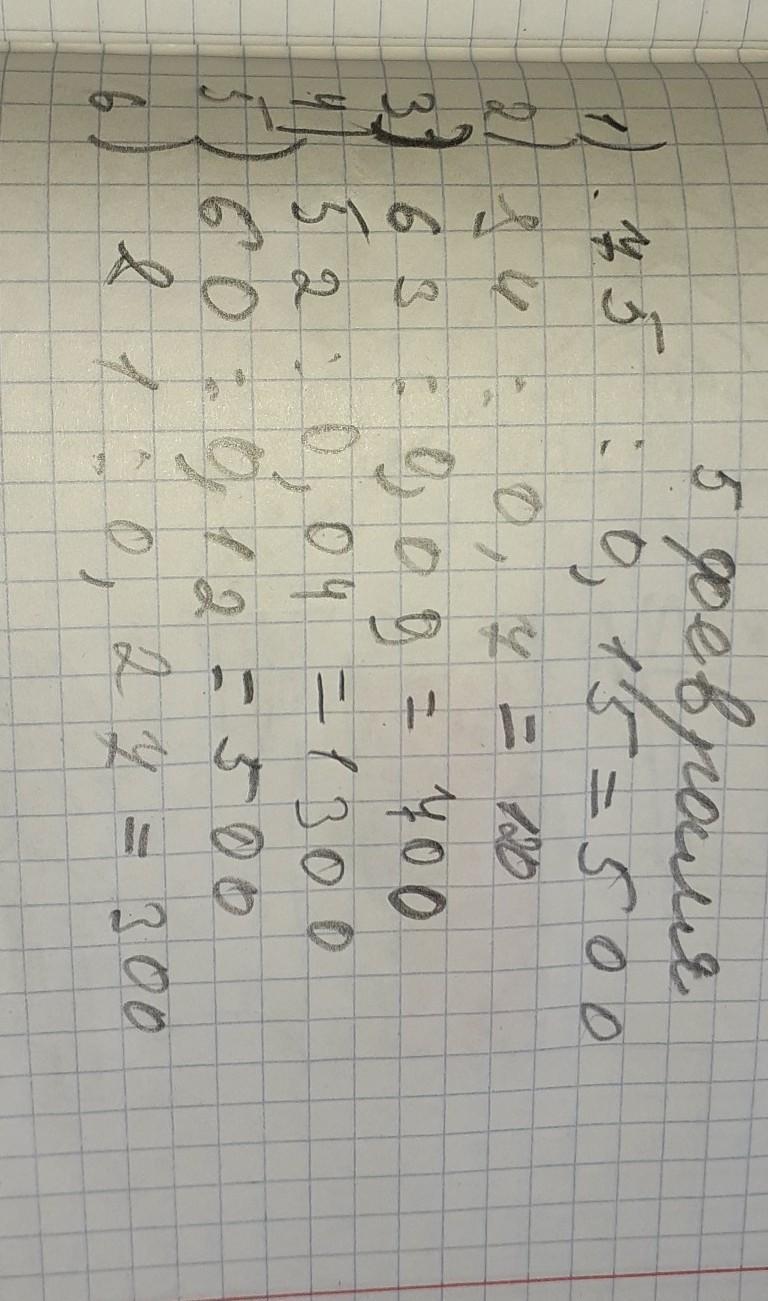 5 февраля
1) 75 : 0,15 = 500
2) 84 : 0,7 =
3) 63 : 0,09 = 700
4) 52 : 0,04 = 1300
5) 60 : 0,12 = 500
6) 81 : 0,27 = 300